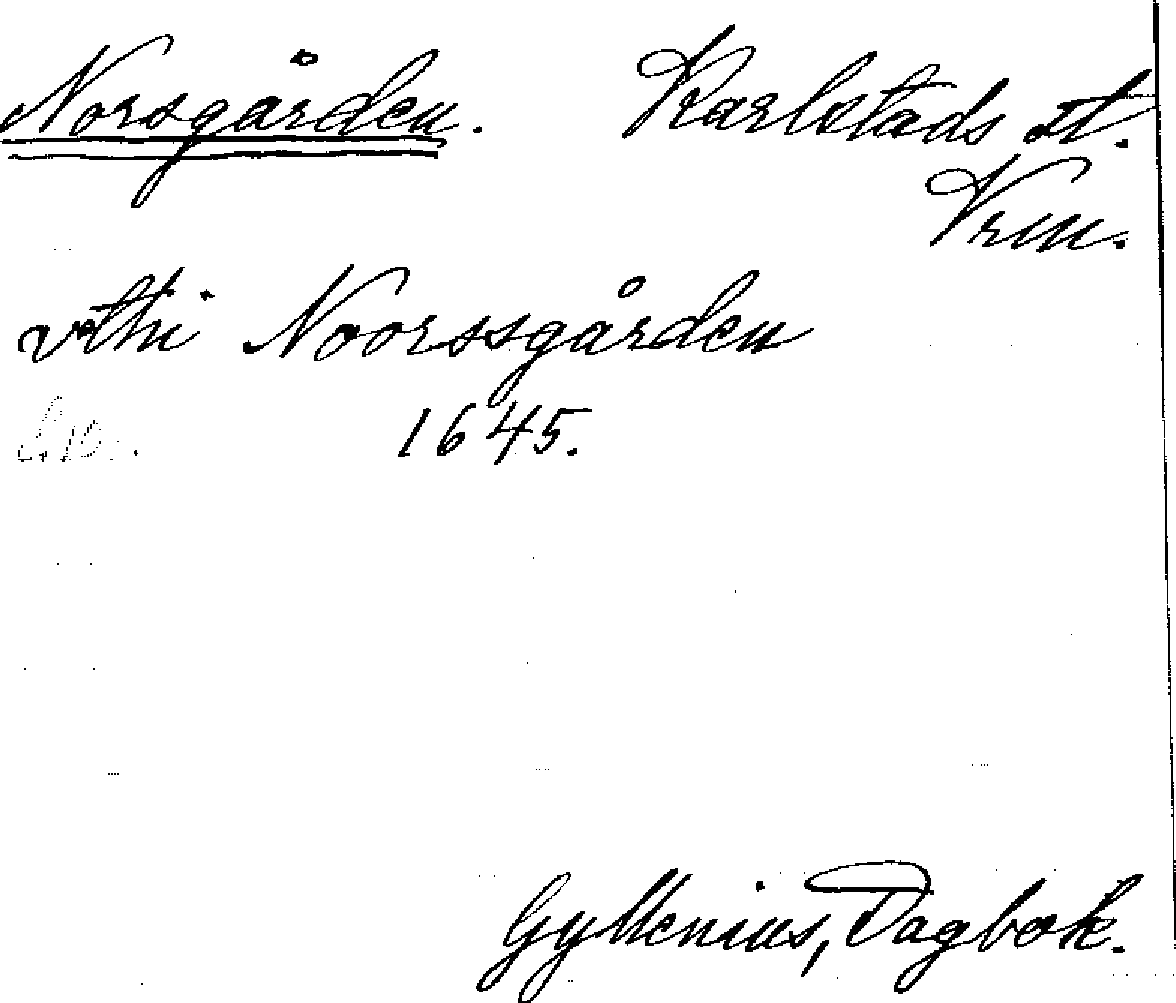 Norsgården. Karlstads st.
Vrm.
vthi Noorssgården
1645.
Gyllenius, Dagbok.